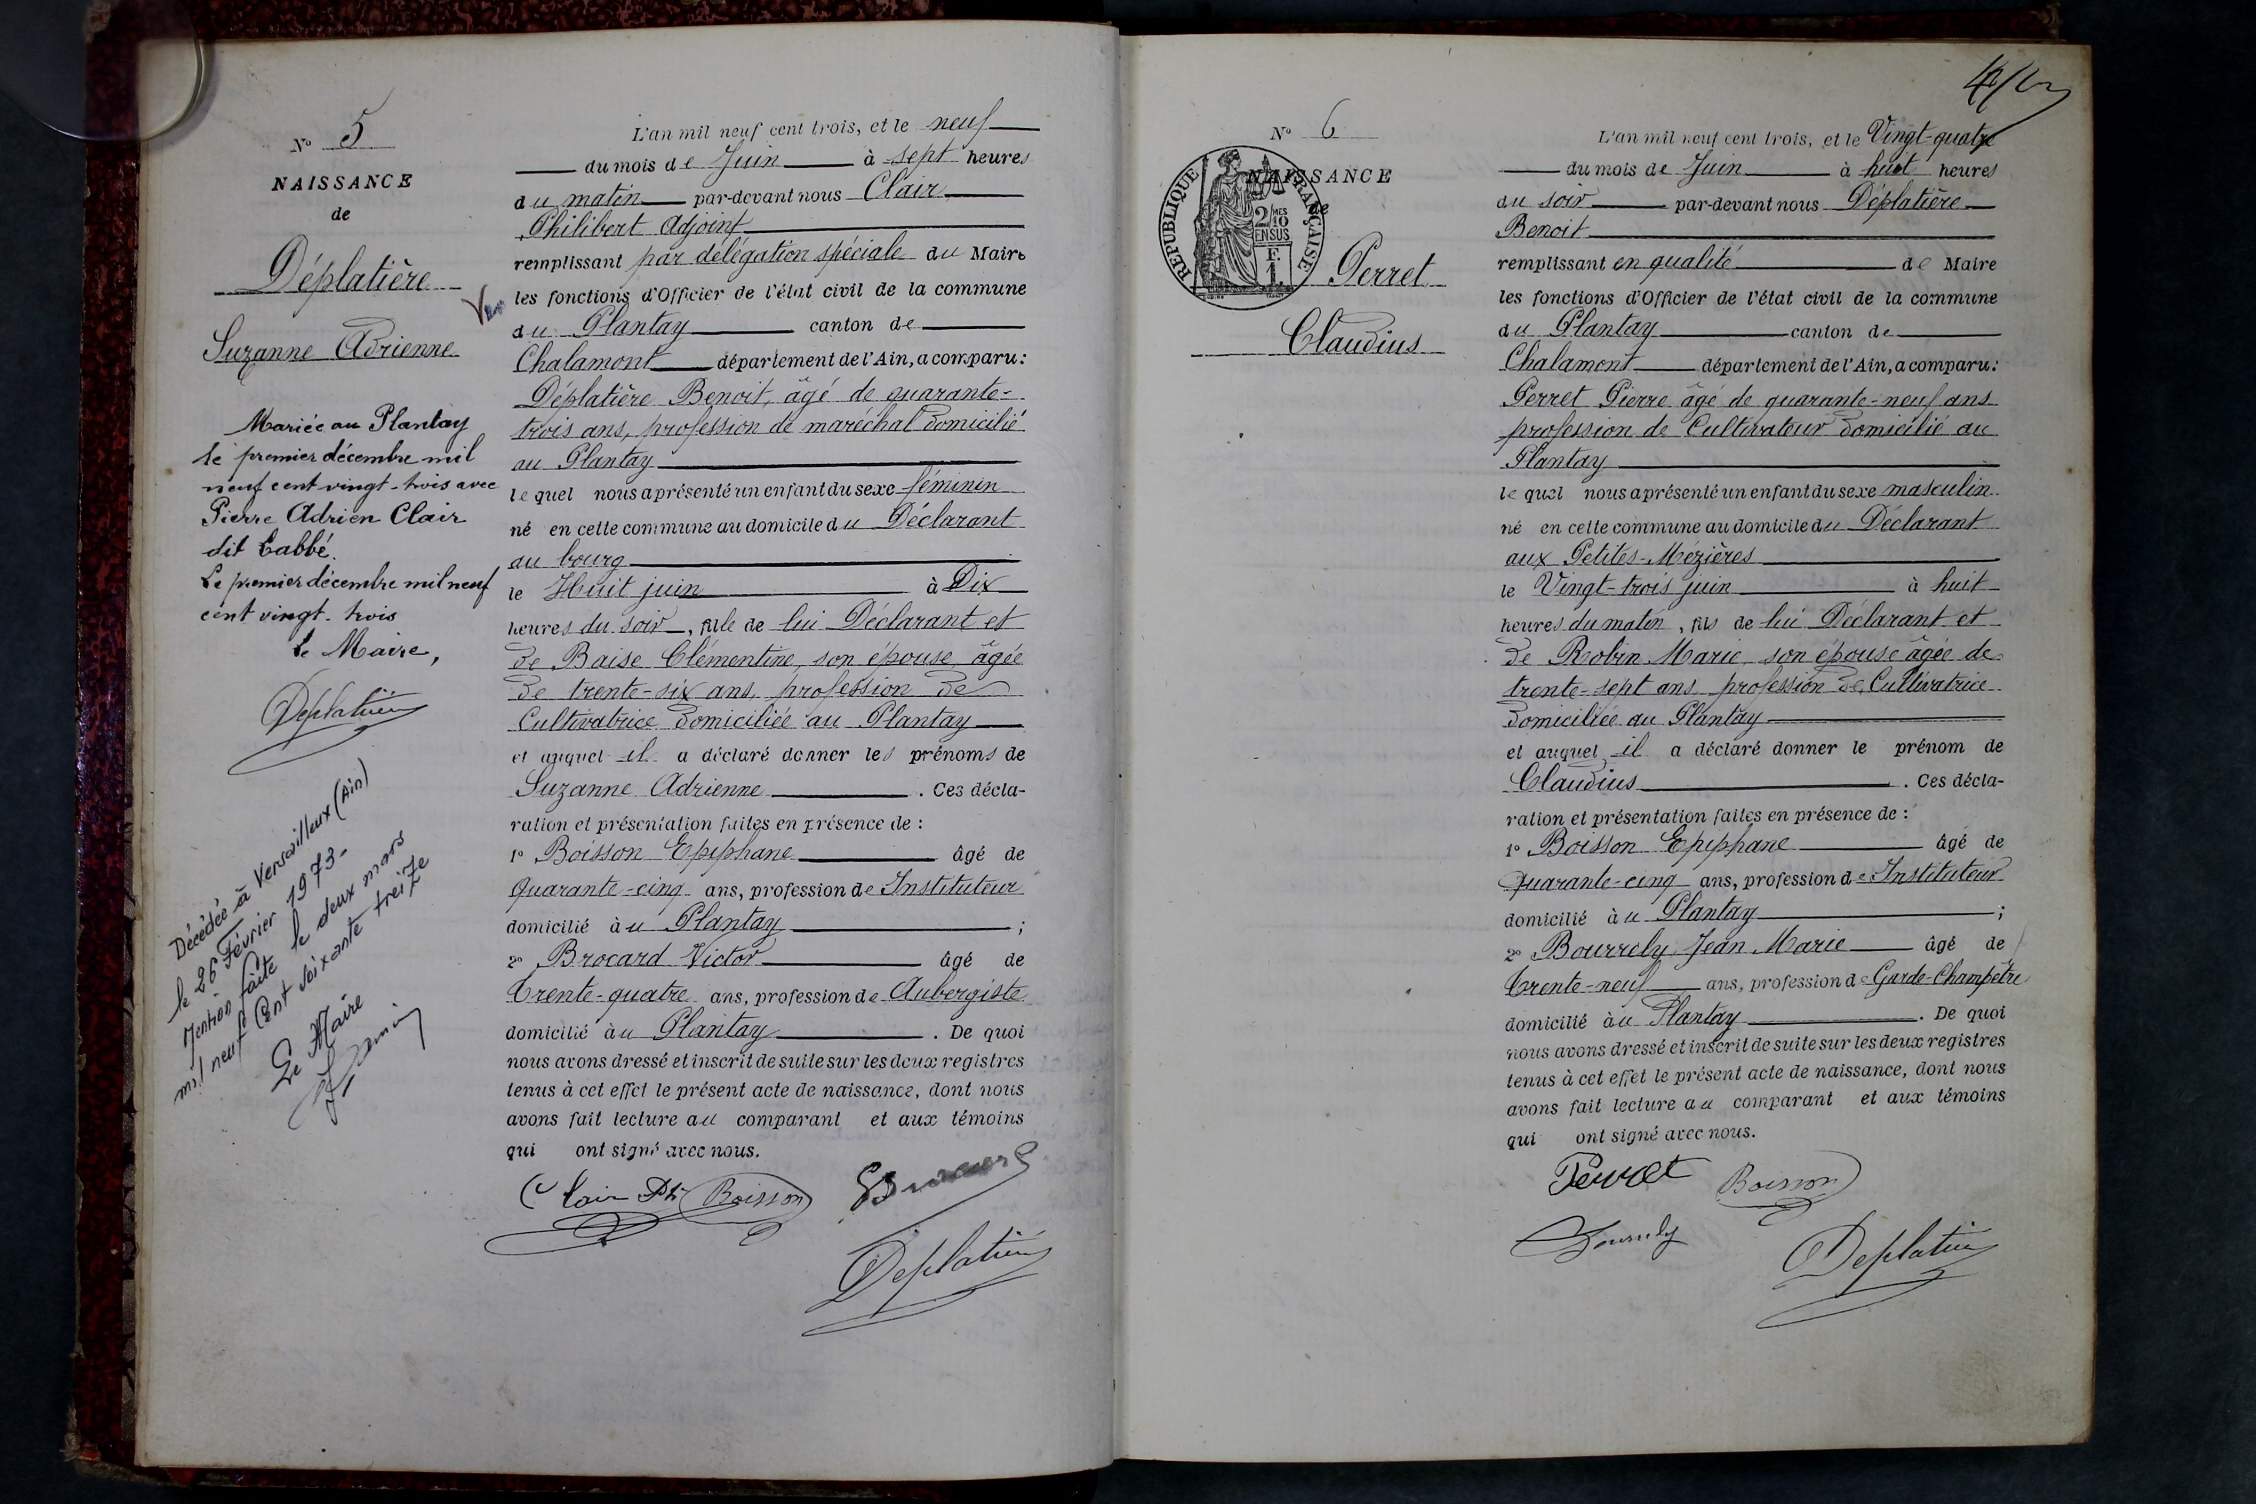 N° 5
NAISSANCE
de
Déplatière
Suzanne Adrienne
Mariée au Plantay
le premier décembre mil
neuf cent vingt-trois avec
Pierre Adrien Clair
dit Labbé.
Le premier décembre mil neuf
cent vingt-trois
Le Maire,
Déplatière
Décédée à Versailleux (Ain)
le 26 Février 1973-
Mention faite le deux mars
mil neuf Cent soixante treize
Le Maire
L'an mil neuf cent trois, et le neuf
du mois de Juin à sept heures
du matin par-devant nous Clair
Philibert Adjoint
remplissant par délégation spéciale du Maire
les fonctions d'Officier de l'état civil de la commune
du Plantay canton de
Chalamont département de l'Ain, a comparu:
Déplatière Benoit, âgé de quarante-
trois ans, profession de maréchal domicilié
au Plantay
lequel nous a présenté un enfant du sexe féminin
né en cette commune au domicile du Déclarant
au bourg
le Huit juin à Dix
heures du soir, fille de lui Déclarant et
de Baise Clémentine, son épouse âgée
de trente-six ans, profession de
Cultivatrice domiciliée au Plantay
et auquel il a déclaré donner les prénoms de
Suzanne Adrienne. Ces décla-
ration et présentation faites en présence de :
1° Boisson Epiphane âgé de
Quarante-cinq ans, profession de Instituteur
domicilié au Plantay ;
2° Brocard Victor âgé de
Trente-quatre ans, profession de Aubergiste
domicilié au Plantay. De quoi
nous avons dressé et inscrit de suite sur les deux registres
tenus à cet effet le présent acte de naissance, dont nous
avons fait lecture au comparant et aux témoins
qui ont signé avec nous.
Clair Ph Boisson Brocard
Déplatière
N° 6
NAISSANCE
de
REPUBLIQUE FRANÇAISE
2/MES
10
EN SUS
F.
1
Perret
Claudius
L'an mil neuf cent trois, et le Vingt-quatre
du mois de Juin à huit heures
du soir par-devant nous Déplatière
Benoit
remplissant en qualité de Maire
les fonctions d'Officier de l'état civil de la commune
du Plantay canton de
Chalamont département de l'Ain, a comparu:
Perret Pierre âgé de quarante-neuf ans
profession de Cultivateur domicilié au
Plantay
lequel nous a présenté un enfant du sexe masculin
né en cette commune au domicile du Déclarant
aux Petites-Mézières
le Vingt-trois juin à huit
heures du matin, fils de lui Déclarant et
de Robin Marie son épouse âgée de
trente-sept ans profession de Cultivatrice
domiciliée au Plantay
et auquel il a déclaré donner le prénom de
Claudius. Ces décla-
ration et présentation faites en présence de :
1° Boisson Epiphane âgé de
Quarante-cinq ans, profession de Instituteur
domicilié au Plantay ;
2° Bourrely Jean Marie âgé de
Trente-neuf ans, profession de Garde-Champêtre
domicilié au Plantay. De quoi
nous avons dressé et inscrit de suite sur les deux registres
tenus à cet effet le présent acte de naissance, dont nous
avons fait lecture au comparant et aux témoins
qui ont signé avec nous.
Perret Boisson
Bourrely
Déplatière